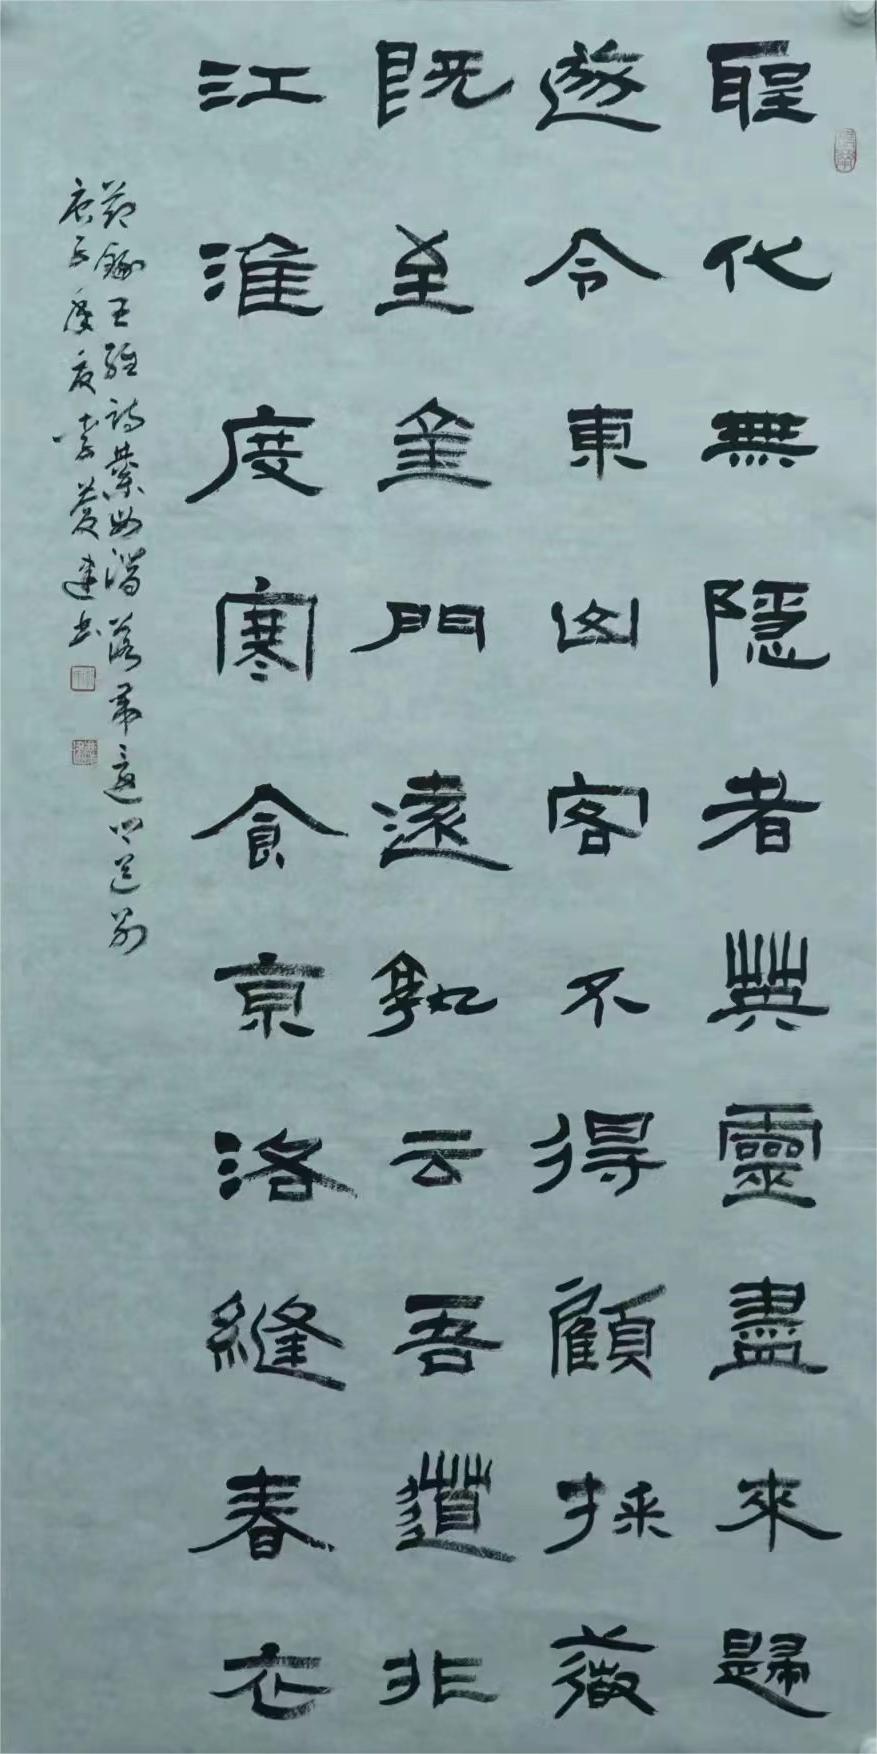 聖代無隱者英靈盡來歸
遂令東山客不得顧採薇
既至金門遠孰云吾道非
江淮度寒食京洛縫春衣
節錄王維詩綦毋潛落第還鄉送別
庚子季夏建書